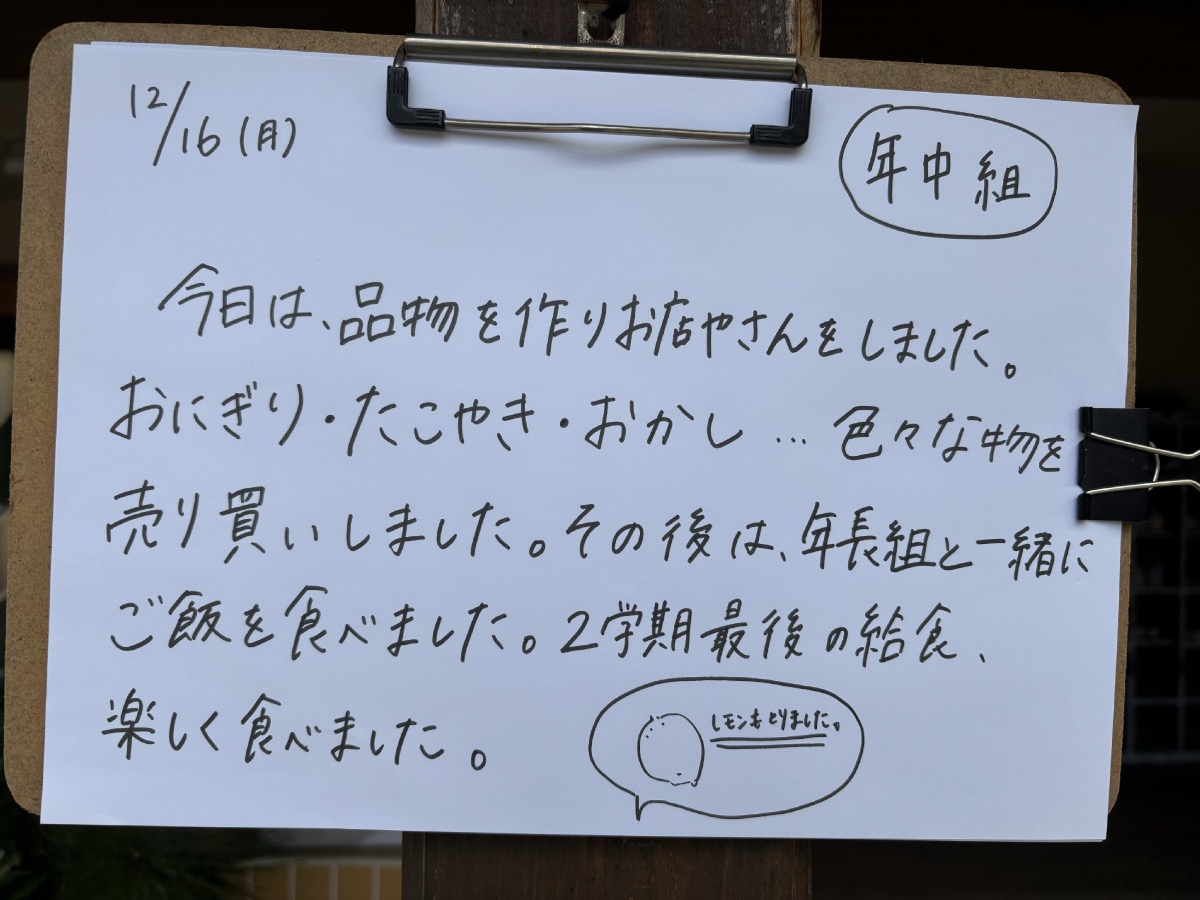 12/16(月)
年中組
今日は、品物を作りお店やさんをしました。
おにぎり・たこやき・おかし…色々な物を
売り買いしました。その後は、年長組と一緒に
ご飯を食べました。2学期最後の給食、
楽しく食べました。
レモンもとりました。